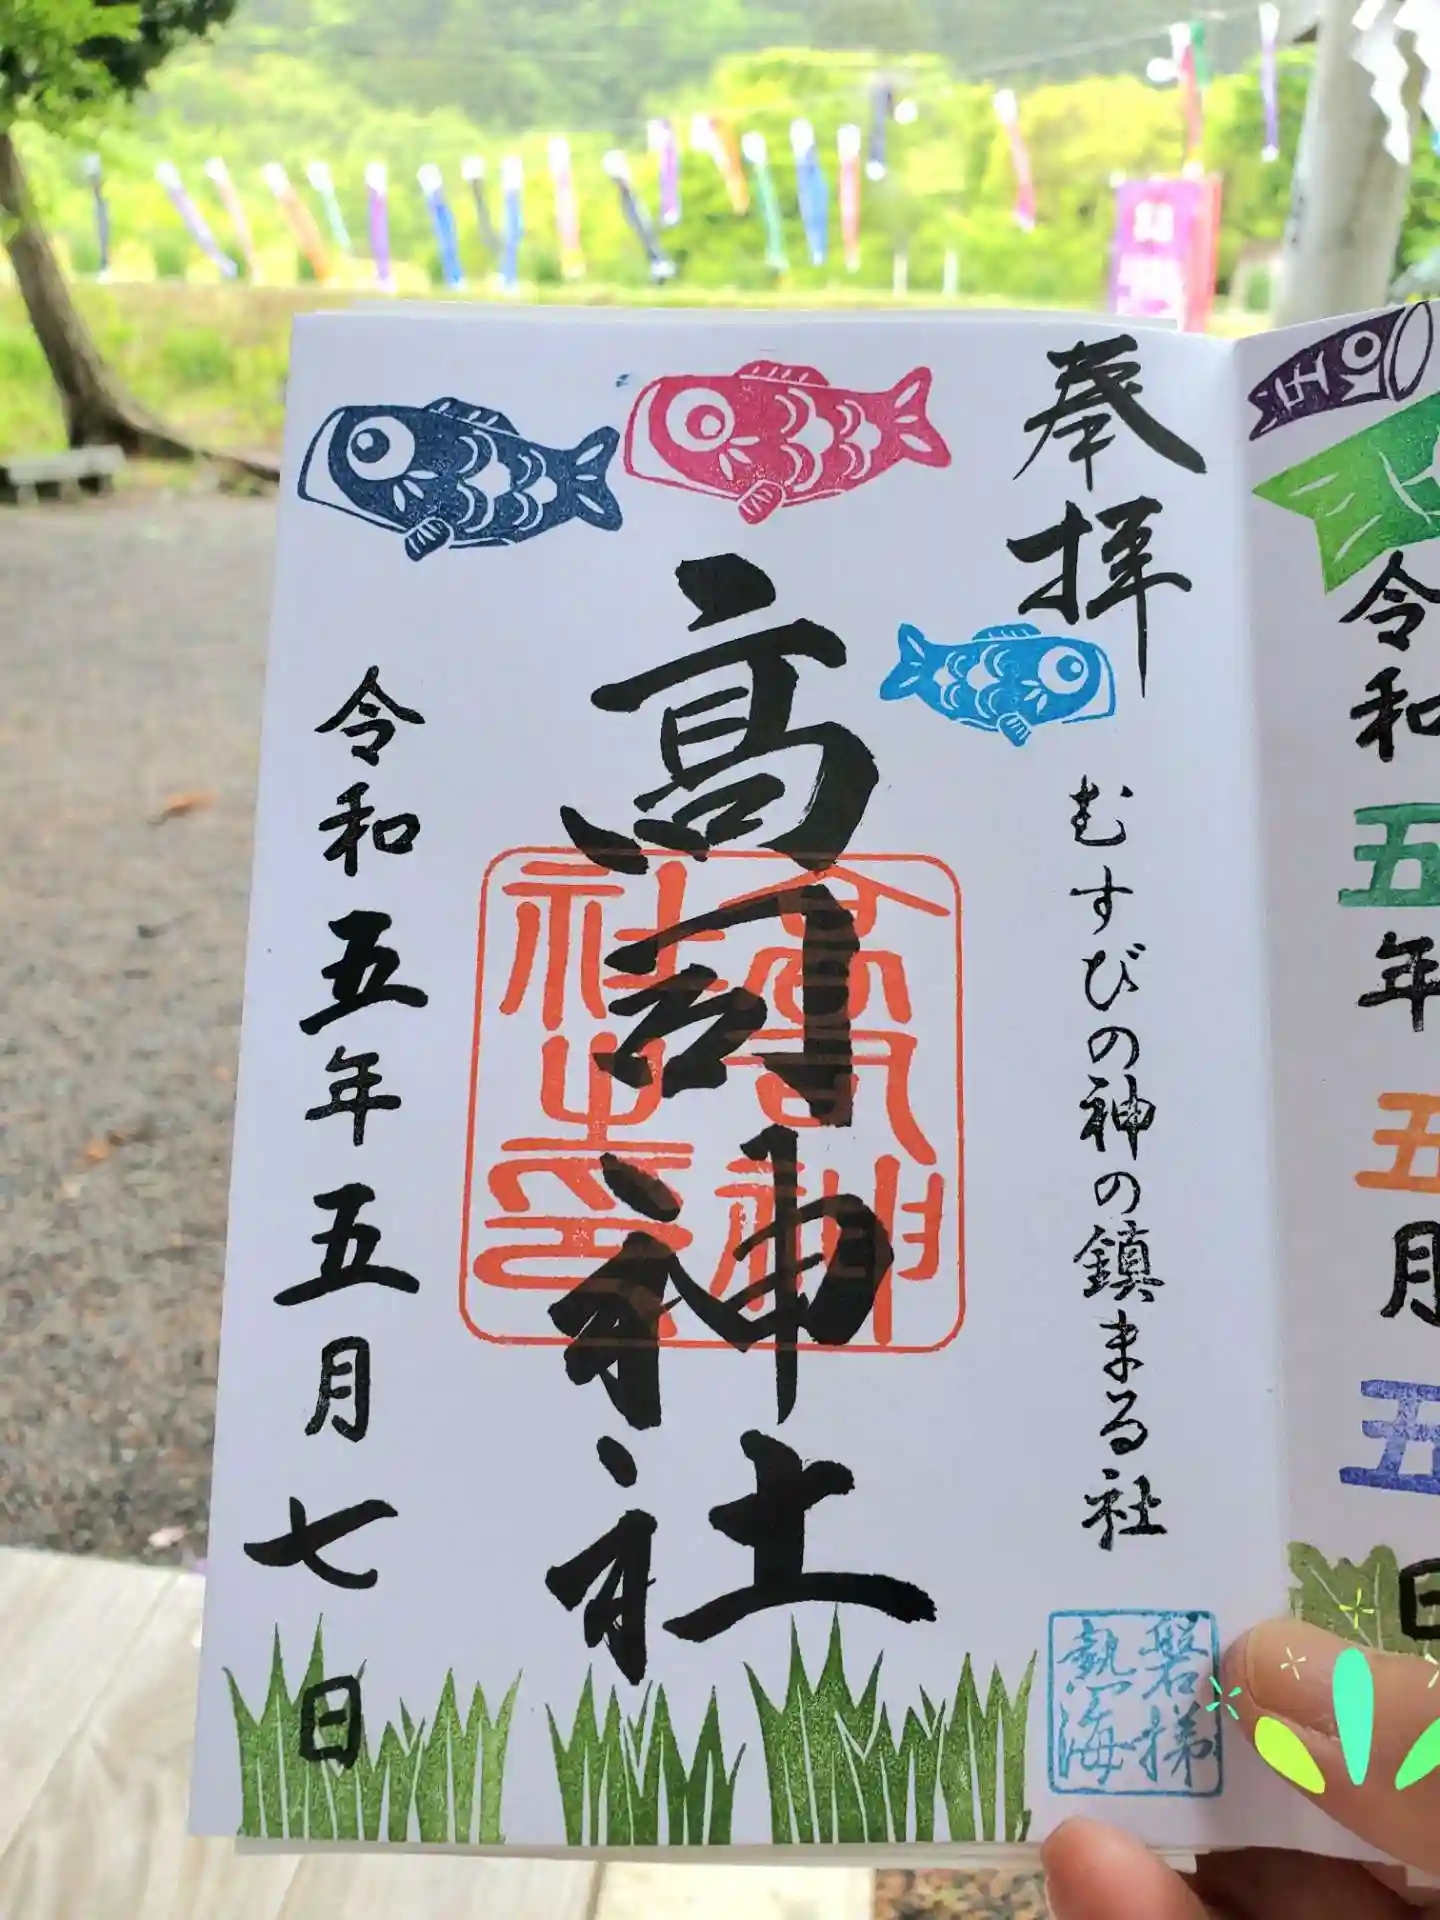 令和
五
年
五
月
五
日
奉拝
むすびの神の鎮まる社
磐梯
熱海
高司神社
高司神
社之印
令和五年五月七日